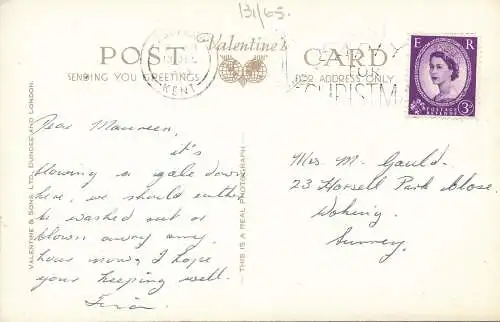 131/65.
POST Valentine's CARD
SENDING YOU GREETINGS FOR ADDRESS ONLY
KENT
POST EARLY
FOR
CHRISTMA
E R
POSTAGE
REVENUE
3D
VALENTINE & SONS, LTD., DUNDEE AND LONDON.
THIS IS A REAL PHOTOGRAPH
Dear Maureen,
it's
blowing a gale down
here, we should either
be washed out or
blown away any
hour now, I hope
your keeping well.
Mrs. M. Gauld.
23 Horsell Park Close.
Woking.
Surrey.